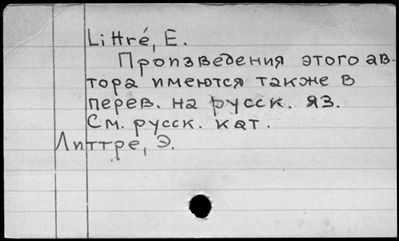 Littré, E.
Произведения этого ав-
тора имеются также в
перев. на русск. яз.
См. русск. кат.
Литтре, Э.